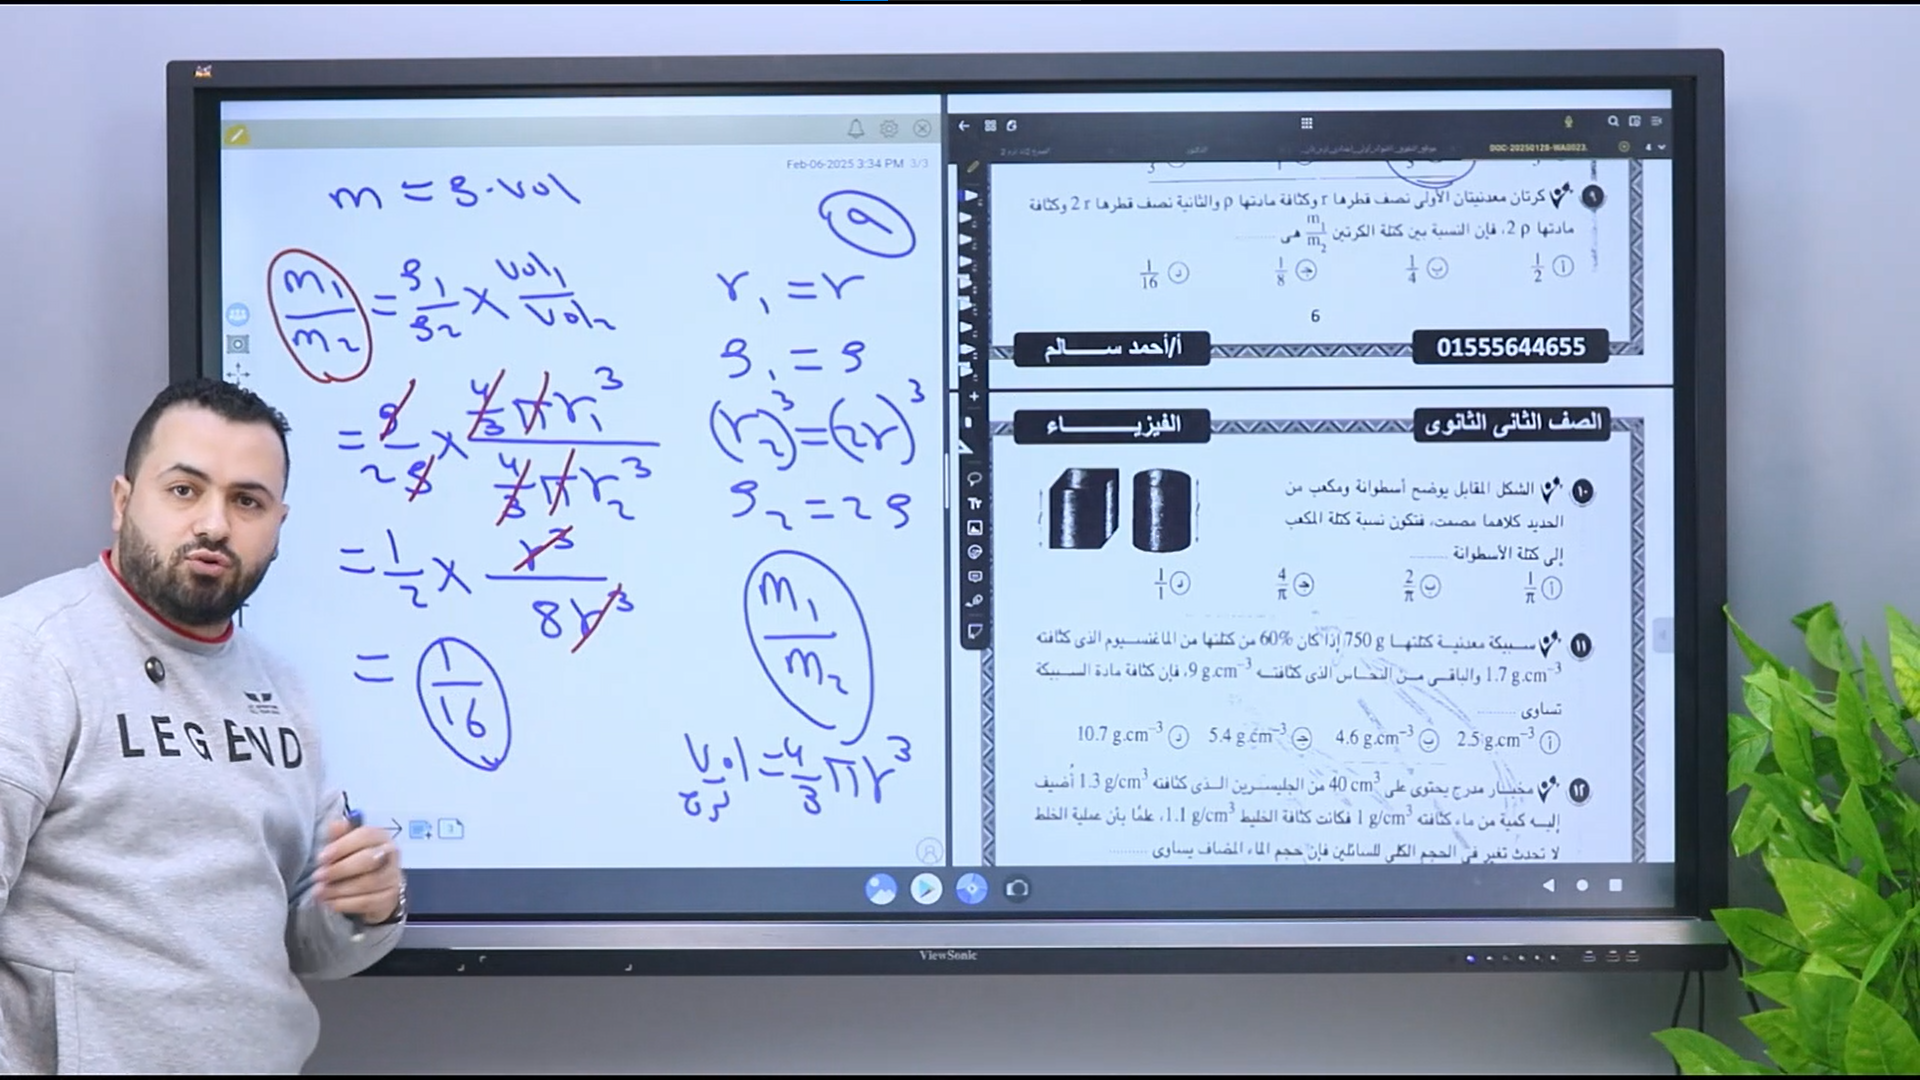 Feb-06-2025 3:34 PM 3/3
m = ρ · Vol
m₁/m₂ = ρ₁/ρ₂ × Vol₁/Vol₂
= ρ/2ρ × (4/3 π r₁³)/(4/3 π r₂³)
= 1/2 × r³/8r³
= 1/16
٩
r₁ = r
ρ₁ = ρ
(r₂)³ = (2r)³
ρ₂ = 2ρ
m₁/m₂
Vol = 4/3 π r³
كرة
LEGEND
DOC-20250128-WA0023.
٩ كرتان معدنيتان الأولى نصف قطرها r وكثافة مادتها ρ والثانية نصف قطرها 2 r وكثافة
مادتها 2 ρ، فإن النسبة بين كتلة الكرتين m₁/m₂ هى ..........
أ 1/2 ب 1/4 جـ 1/8 د 1/16
6
أ/أحمد ســـالم 01555644655
الصف الثانى الثانوى الفيزيـــاء
١٠ الشكل المقابل يوضح أسطوانة ومكعب من
الحديد كلاهما مصمت، فتكون نسبة كتلة المكعب
إلى كتلة الأسطوانة ..........
أ 1/π ب 2/π جـ 4/π د 1/1
١١ سبيكة معدنية كتلتها 750 g إذا كان 60% من كتلتها من الماغنسيوم الذى كثافته
1.7 g.cm⁻³ والباقى من النحاس الذى كثافته 9 g.cm⁻³، فإن كثافة مادة السبيكة
تساوى ..........
أ 2.5 g.cm⁻³ ب 4.6 g.cm⁻³ جـ 5.4 g.cm⁻³ د 10.7 g.cm⁻³
١٢ مخبار مدرج يحتوى على 40 cm³ من الجليسرين الذى كثافته 1.3 g/cm³ أُضيف
إليه كمية من ماء كثافته 1 g/cm³ فكانت كثافة الخليط 1.1 g/cm³، علمًا بأن عملية الخلط
لا تحدث تغير فى الحجم الكلى للسائلين فإن حجم الماء المضاف يساوى ..........
ViewSonic